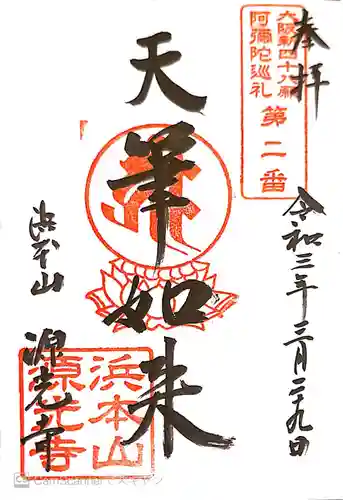 奉拝
大阪新四十八願
阿彌陀巡礼
第二番
令和三年三月二十九日
天筆如来
浜本山
源光寺
浜本山
源光寺
CamScanner でスキャン